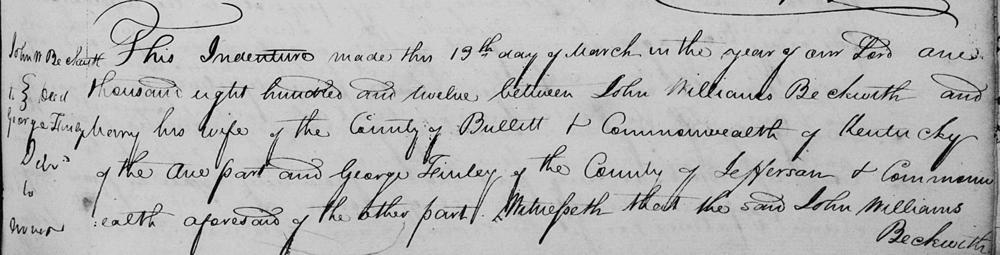 John W Beckwith
To } Deed
George Finley
Delvd
to
This Indenture made this 19th day of March in the year of our Lord one
thousand eight hundred and twelve between John Williams Beckwith and
his wife of the County of Bullitt & Commonwealth of Kentucky
of the One part and George Finley of the County of Jefferson & Common
:ealth aforesaid of the other part. Witnesseth that the said John Williams
Beckwith